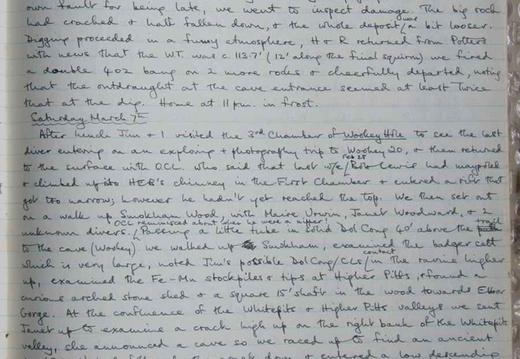 own fault for being late, we went to inspect damage. The big rock
had cracked & half fallen down, & the whole deposit was a bit looser.
Digging proceeded in a funny atmosphere, H & R returned from Potters
with news that the WT. was c. 113.7' (12' along the final squirm) we fired
a double 4oz bang on 2 more rocks & cheerfully departed, noting
that the outdraught at the cave entrance seemed at least twice
that at the dig. Home at 11 pm. in frost.
Saturday March 7th
After lunch Jim & I visited the 3rd Chamber of Wookey Hole to see the last
diver entering on an exploring & photography trip to Wookey 20, & then returned
to the surface with OCL. who said that last w/e (Feb 28) Rob had
& climbed up HEB's chimney in the First Chamber & entered a rift that
got too narrow, however he hadn't yet reached the top. We then set out
on a walk up Smokham Wood, with Maire Urwin, Janet Woodward, & 2
unknown divers. OCL
Passing a little tube in solid Dol Cong 40' above the trail
to the cave (Wookey) we walked up Smokham, examined the badger sett
which is very large, noted Jim's possible Dol Cong/CLS contact in the ravine higher
up, examined the Fe-Mn stockpiles & tips at Higher Pitts, & found a
curious arched stone shed & a square 15' shaft in the wood towards Ebbor
Gorge. At the confluence of the Whitepits & Higher Pitts valleys we sent
Janet up to examine a crack high up on the right bank of the Whitepit
valley, she announced a cave so we raced up to find an ancient
& entered a low descending